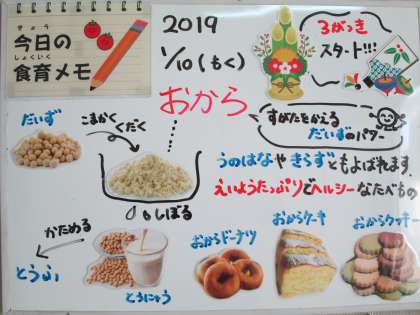 きょう
今日の
しょくいく
食育メモ
2019
1/10(もく)
3がっき
スタート!!!
おから
だいず
こまかく
くだく
すがたをかえる
だいずのパワー
うのはなやきらずともよばれます。
えいようたっぷりでヘルシーなたべもの
しぼる
かためる
とうふ
とうにゅう
おからドーナツ
おからケーキ
おからクッキー